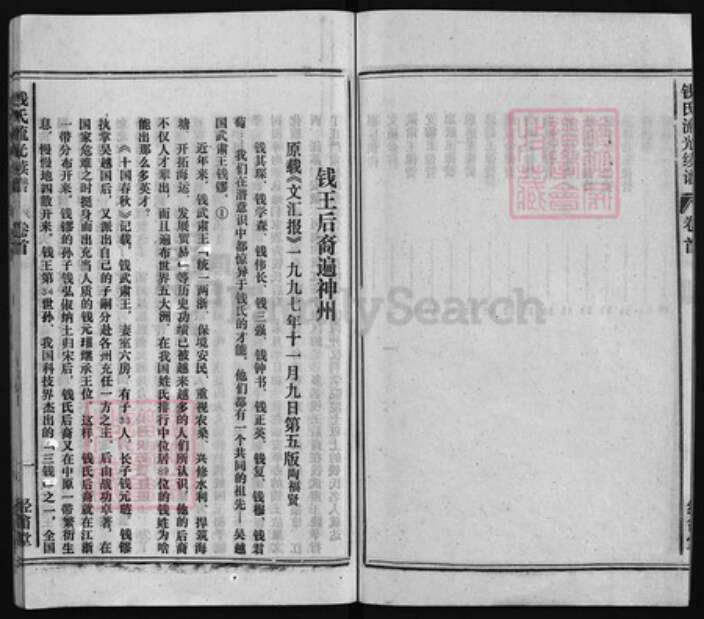 钱氏流光续谱
卷首
钱王后裔遍神州
原载《文汇报》一九九七年十一月九日第五版 陶福贤
钱其琛、钱学森、钱伟长、钱三强、钱钟书、钱正英、钱复、钱穆、钱君
匋……我们在潜意识中都惊异于钱氏的才能，他们都有一个共同的祖先——吴越
国武肃王钱镠。①
近年来，钱武肃王“统一两浙、保境安民、重视农桑、兴修水利、捍筑海
塘、开拓海运、发展贸易”等历史功绩已被越来越多的人们所认识，他的后裔
不仅人才辈出，而且遍布世界五大洲，在我国姓氏排行中位居 位的钱姓为啥
能出那么多英才。
《十国春秋》记载，钱武肃王，妻室六房，有子 人，长子钱元 ，钱镠
执掌吴越国后，又派出自己的子嗣分赴各州充任一方之主，后由战功卓著、在
国家危难之时挺身而出充当人质的钱元瓘继承王位，这样，钱氏后裔就在江浙
一带分布开来，钱镠的孙子钱弘俶纳土归宋后，钱氏后裔又在中原一带繁衍生
息，慢慢地四散开来。钱王第 世孙、我国科技界杰出的“三钱”之一，全国
钱氏流光续谱
卷首
一
经畲堂
FamilySearch